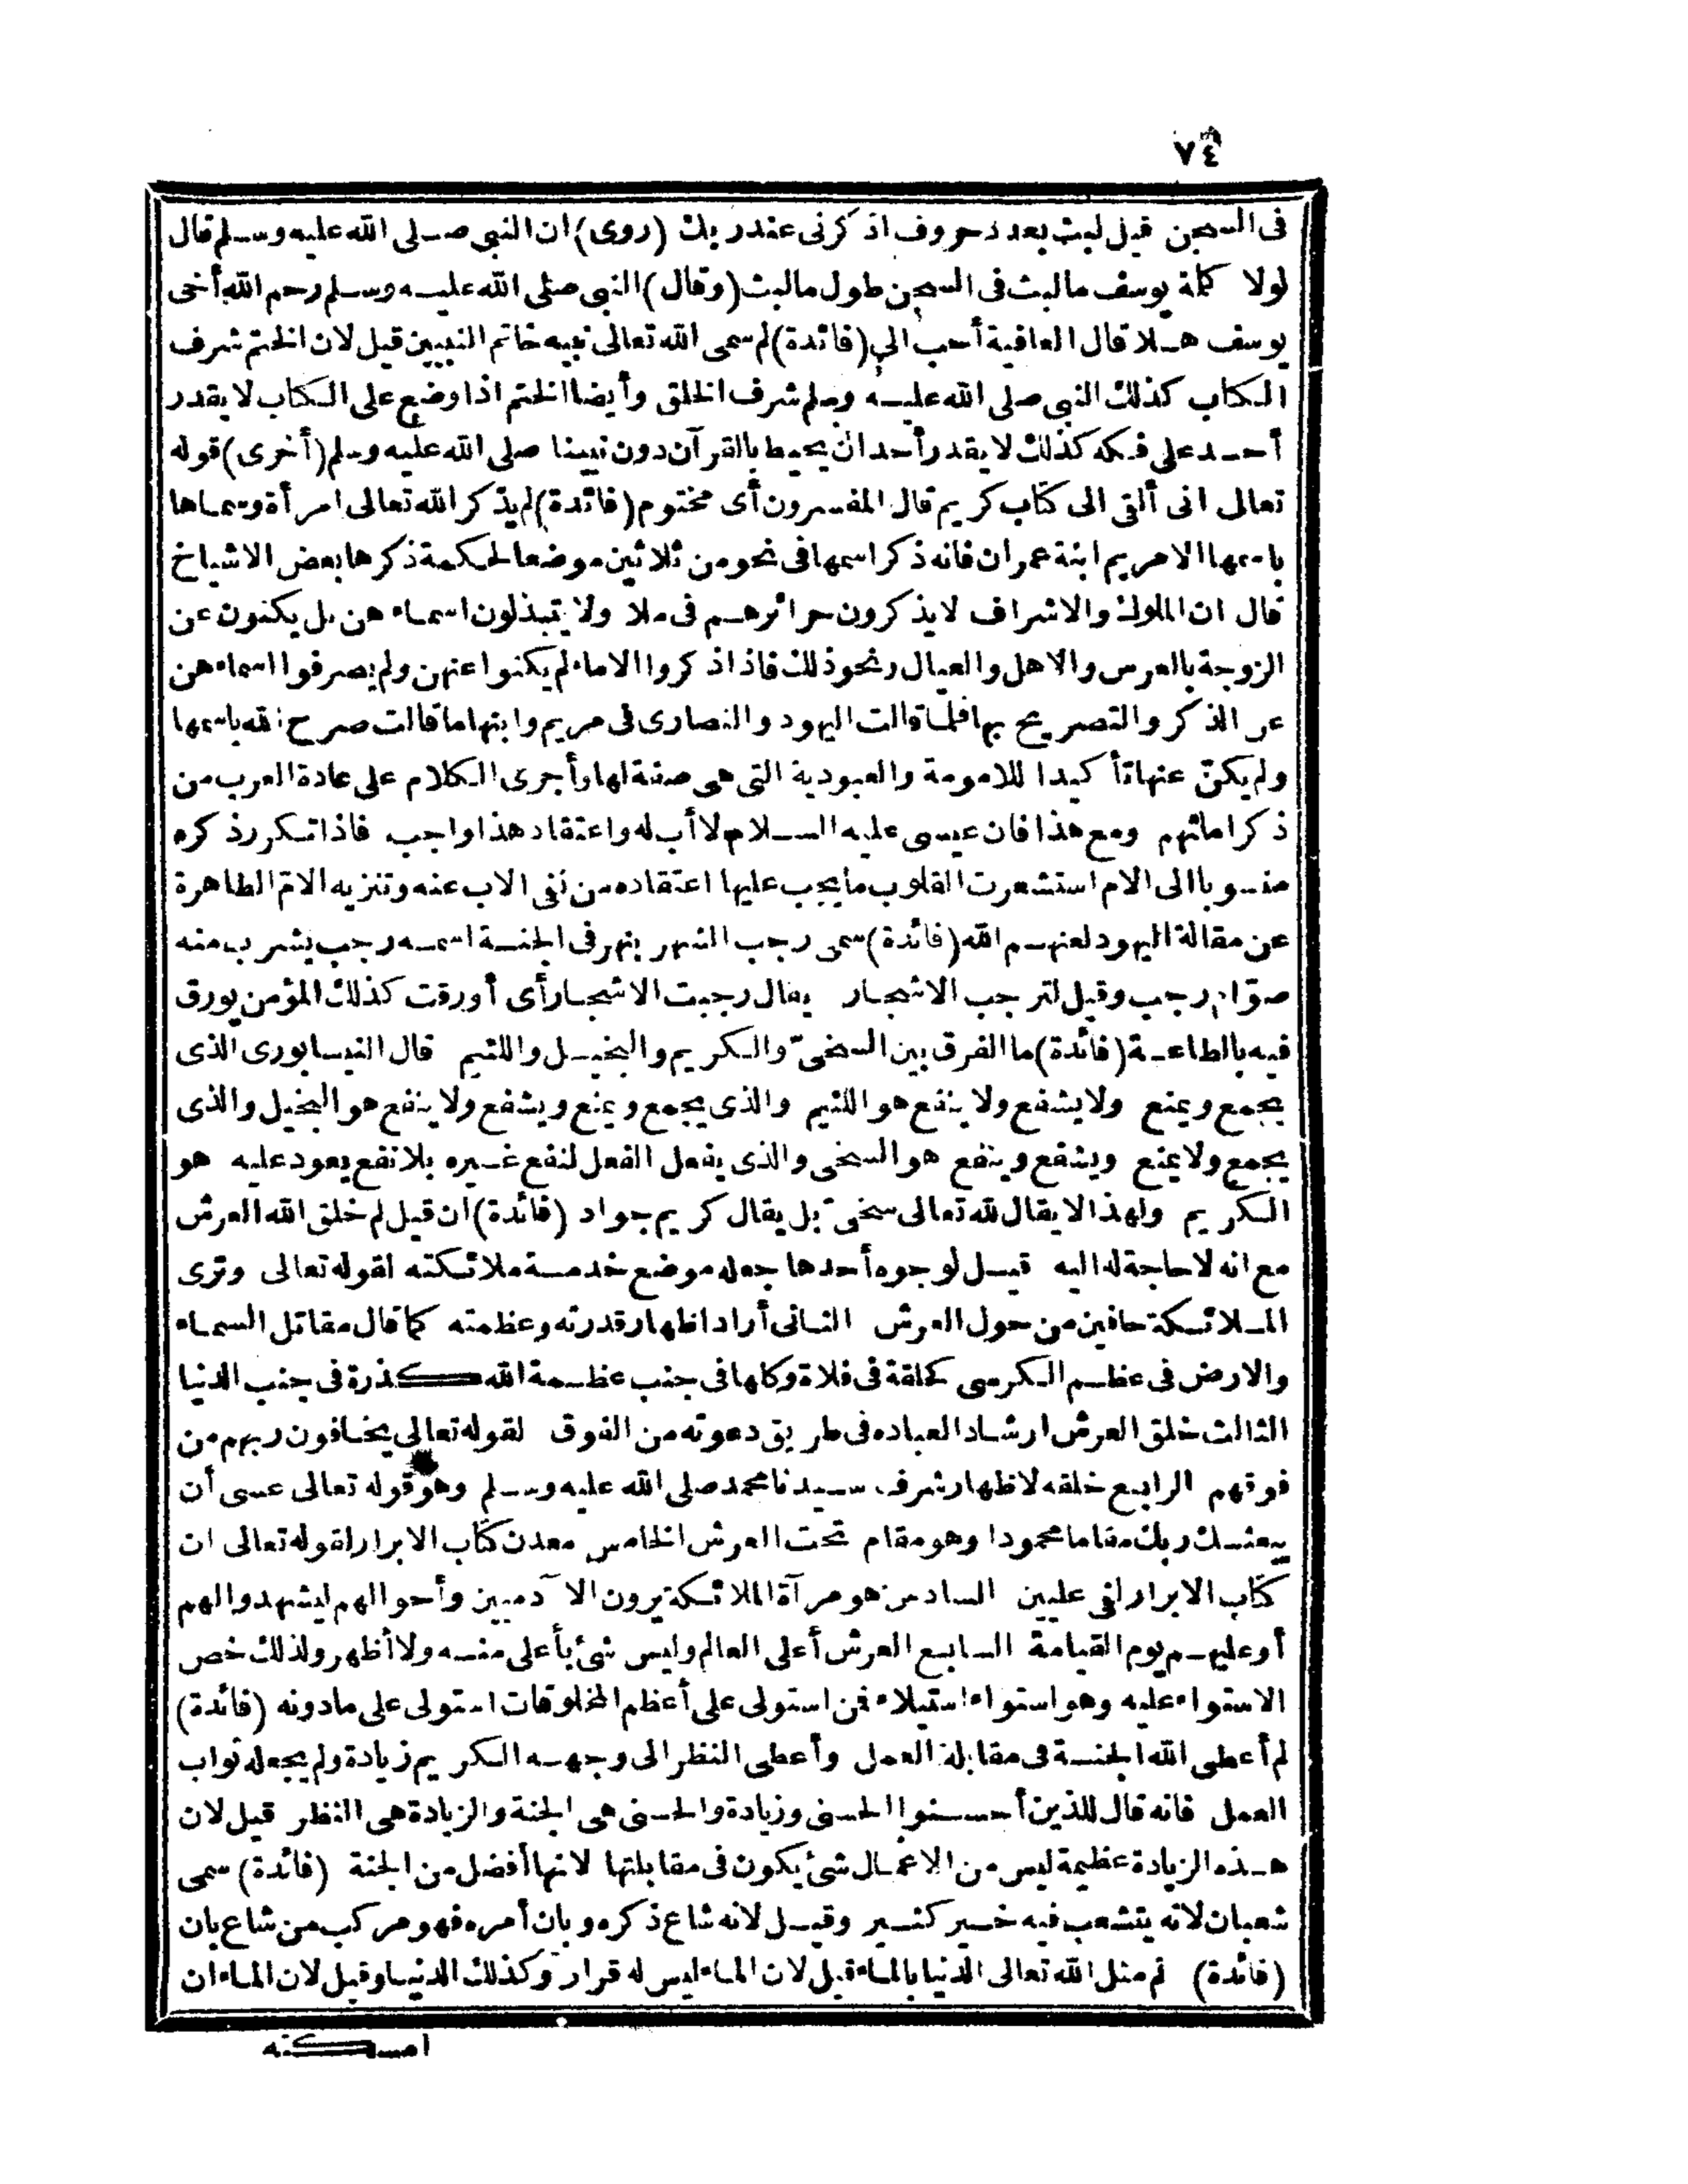 ٧٤
فى السجن قيل لبث بعدد حروف اذكرنى عند ربك (روى) ان النبي صلى الله عليه وسلم قال
لولا كلمة يوسف ما لبث فى السجن طول ما لبث (وقال) النبي صلى الله عليه وسلم رحم الله أخى
يوسف هلا قال العافية أحب الى (فائدة) لم سمى الله تعالى نبيه خاتم النبيين قيل لان الختم شرف
الكتاب كذلك النبي صلى الله عليه وسلم شرف الخلق وأيضا الختم اذا وضع على الكتاب لا يقدر
أحد على فكه كذلك لا يقدر أحد ان يحيط بالقرآن دون نبينا صلى الله عليه وسلم (أخرى) قوله
تعالى انى ألقى الى كتاب كريم قال المفسرون أى مختوم (فائدة) لم يذكر الله تعالى امرأة وسماها
باسمها الا مريم ابنة عمران فانه ذكر اسمها فى نحو من ثلاثين موضعا لحكمة ذكرها بعض الاشياخ
قال ان الملوك والاشراف لا يذكرون حرائرهم فى ملا ولا يتبذلون اسماءهن بل يكنون عن
الزوجة بالعرس والاهل والعيال ونحو ذلك فاذا ذكروا الاماء لم يكنوا عنهن ولم يصرفوا اسماءهن
عن الذكر والتصريح بها فلما قالت اليهود والنصارى فى مريم وابنها ما قالت صرح الله باسمها
ولم يكنّ عنها تأكيدا للامومة والعبودية التى هى صفة لها وأجرى الكلام على عادة العرب من
ذكر امائهم ومع هذا فان عيسى عليه السلام لا أب له واعتقاد هذا واجب فاذا تكرر ذكره
منسوبا الى الام استشعرت القلوب ما يجب عليها اعتقاده من نفى الاب عنه وتنزيه الامّ الطاهرة
عن مقالة اليهود لعنهم الله (فائدة) سمى رجب الشهر بنهر فى الجنة اسمه رجب يشرب منه
صوّام رجب وقيل لترجب الاشجار يقال رجبت الاشجار أى أورقت كذلك المؤمن يورق
فيه بالطاعة (فائدة) ما الفرق بين السخىّ والكريم والبخيل واللئيم قال النيسابورى الذى
يجمع ويمنع ولا يشفع ولا ينفع هو اللئيم والذى يجمع ويمنع ويشفع ولا ينفع هو البخيل والذى
يجمع ولا يمنع ويشفع وينفع هو السخى والذى يفعل الفعل لنفع غيره بلا نفع يعود عليه هو
الكريم ولهذا لا يقال لله تعالى سخىّ بل يقال كريم جواد (فائدة) ان قيل لم خلق الله العرش
مع انه لا حاجة له اليه قيل لوجوه أحدها جعله موضع خدمة ملائكته لقوله تعالى وترى
الملائكة حافين من حول العرش الثانى أراد اظهار قدرته وعظمته كما قال مقاتل السماء
والارض فى عظم الكرسى كحلقة فى فلاة وكلها فى جنب عظمة الله كذرة فى جنب الدنيا
الثالث خلق العرش ارشادا لعباده فى طريق دعوته من الفوق لقوله تعالى يخافون ربهم من
فوقهم الرابع خلقه لاظهار شرف سيدنا محمد صلى الله عليه وسلم وهو قوله تعالى عسى أن
يبعثك ربك مقاما محمودا وهو مقام تحت العرش الخامس معدن كتاب الابرار لقوله تعالى ان
كتاب الابرار لفى عليين السادس هو مرآة الملائكة يرون الآدميين وأحوالهم ليشهدوا لهم
أو عليهم يوم القيامة السابع العرش أعلى العالم وليس شئ بأعلى منه ولا أظهر ولذلك خص
الاستواء عليه وهو استواء استيلاء فمن استولى على أعظم المخلوقات استولى على ما دونه (فائدة)
لم أعطى الله الجنة فى مقابلة العمل وأعطى النظر الى وجهه الكريم زيادة ولم يجعله ثواب
العمل فانه قال للذين أحسنوا الحسنى وزيادة والحسنى هى الجنة والزيادة هى النظر قيل لان
هذه الزيادة عظيمة ليس من الاعمال شئ يكون فى مقابلتها لانها أفضل من الجنة (فائدة) سمى
شعبان لانه يتشعب فيه خير كثير وقيل لانه شاع ذكره وبان أمره فهو مركب من شاع بان
(فائدة) لم مثل الله تعالى الدنيا بالماء قيل لان الماء ليس له قرار وكذلك الدنيا وقيل لان الماء ان
امسكته